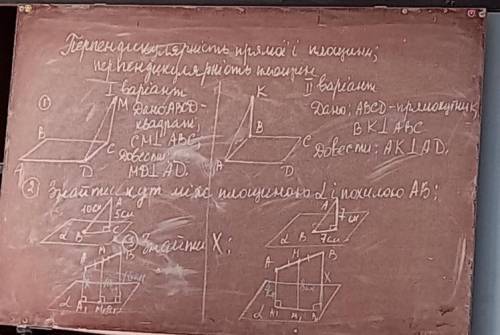 Перпендикулярність прямої і площини;
перпендикулярність площин
I варіант
① Дано: ABCD-
квадрат;
CM⊥ABC
Довести:
MD⊥AD.
M
B
C
A
D
II варіант
Дано: ABCD-прямокутник,
BK⊥ABC
Довести: AK⊥AD.
K
B
C
A
D
② Знайти кут між площиною α і похилою AB;
10см
A
5см
α B C
A
7см
α B 7см C
③ Знайти X;
A M B
X
α A₁ M₁ B₁
A M B
X
α A₁ M₁ B₁